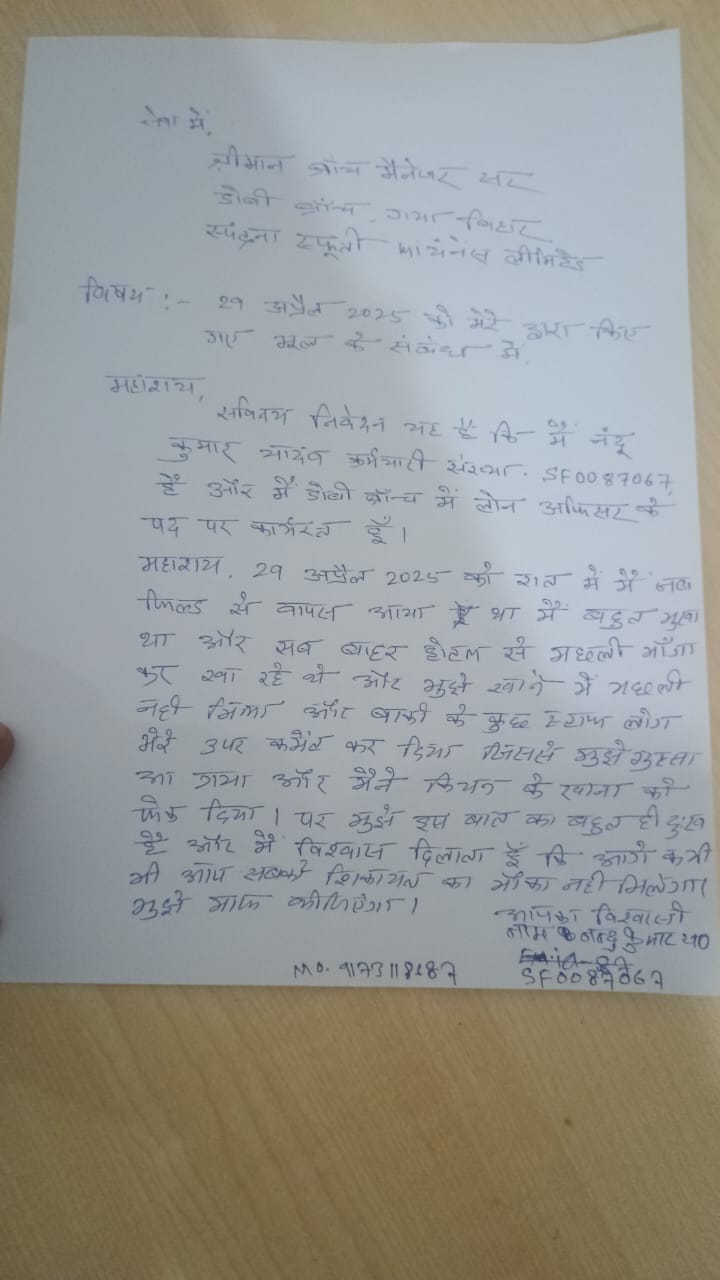 सेवा में,
श्रीमान ब्रांच मैनेजर सर
डोभी ब्रॉंच, गया बिहार
स्पंदना स्फूर्ती फायनेंस लीमिटेड
विषय :- 29 अप्रैल 2025 को मेरे द्वारा किए
गए भूल के संबंध में,
महाशय,
सविनय निवेदन यह है कि मैं नंदू
कुमार यादव कर्मचारी संख्या. SF0087067
है और मैं डोभी ब्रॉंच में लोन अफिसर के
पद पर कार्यरत हूँ।
महाशय, 29 अप्रैल 2025 को रात में मैं जब
फिल्ड से वापस आया था मैं बहुत भुखा
था और सब बाहर होटल से मछली माँगा
कर खा रहे थे और मुझे खाने में मछली
नही मिला और बाकी के कुछ स्टाफ लोग
मेरे उपर कमेंट कर दिया जिससे मुझे गुस्सा
आ गया और मैने किचन के खाना को
फेक दिया। पर मुझे इस बात का बहुत ही दुःख
है और मैं विश्वास दिलाता हूँ कि आगे कभी
भी आप सबको शिकायत का मौका नही मिलेगा।
मुझे माफ कीजिएगा।
आपका विश्वासी
नाम नन्दु कुमार या०
SF0087067
MO.